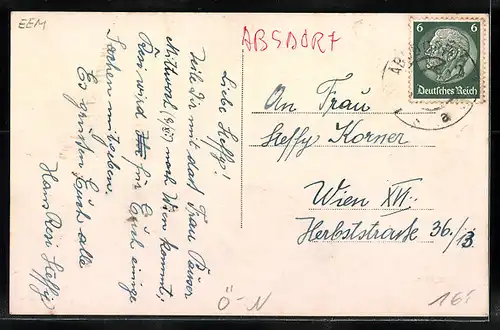 EEM
ABSDORF
6 6
Deutsches Reich
AB
a
Liebe Steffy!
Teile Dir mit dass Frau Pauser
Mittwoch (9/8) nach Wien kommt,
Resi wird für Euch einige
Sachen mitgeben.
Es grüssen Euch alle
Hans Resi Steffy
An Frau
Steffy Korner
Wien XVI.
Herbststrasse 36/13
Ö-N